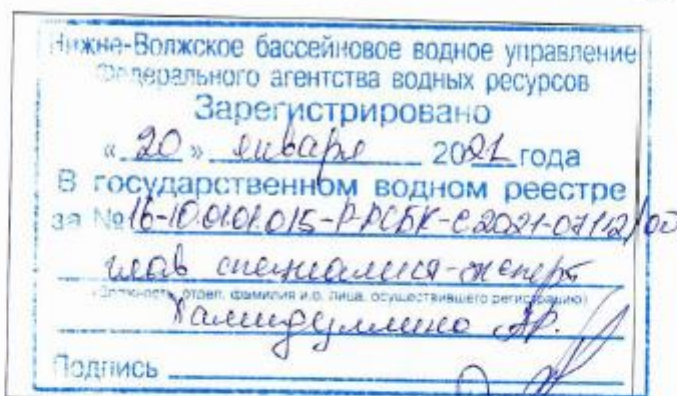 Нижне-Волжское бассейновое водное управление
Федерального агентства водных ресурсов
Зарегистрировано
« 20 » января 2021 года
В государственном водном реестре
за № 16-10.01.01.015-Р-РСБК-С-2021-07112/00
глав специалист-эксперт
(Должность, отдел, фамилия и.о. лица, осуществившего регистрацию)
Хамидуллина АР.
Подпись